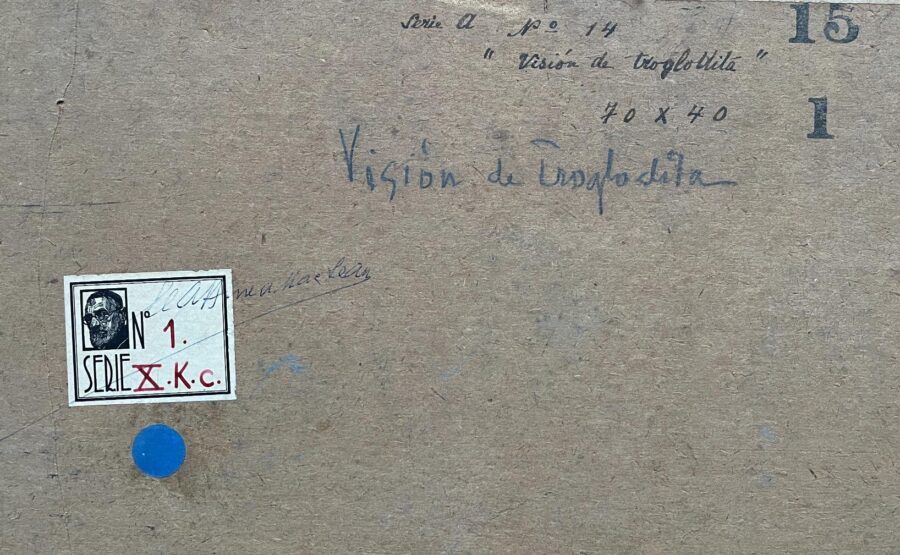 Serie A Nº 14
15
" Visión de troglodita "
70 x 40
1
Visión de Troglodita
Nº 1.
SERIE X.K.c.